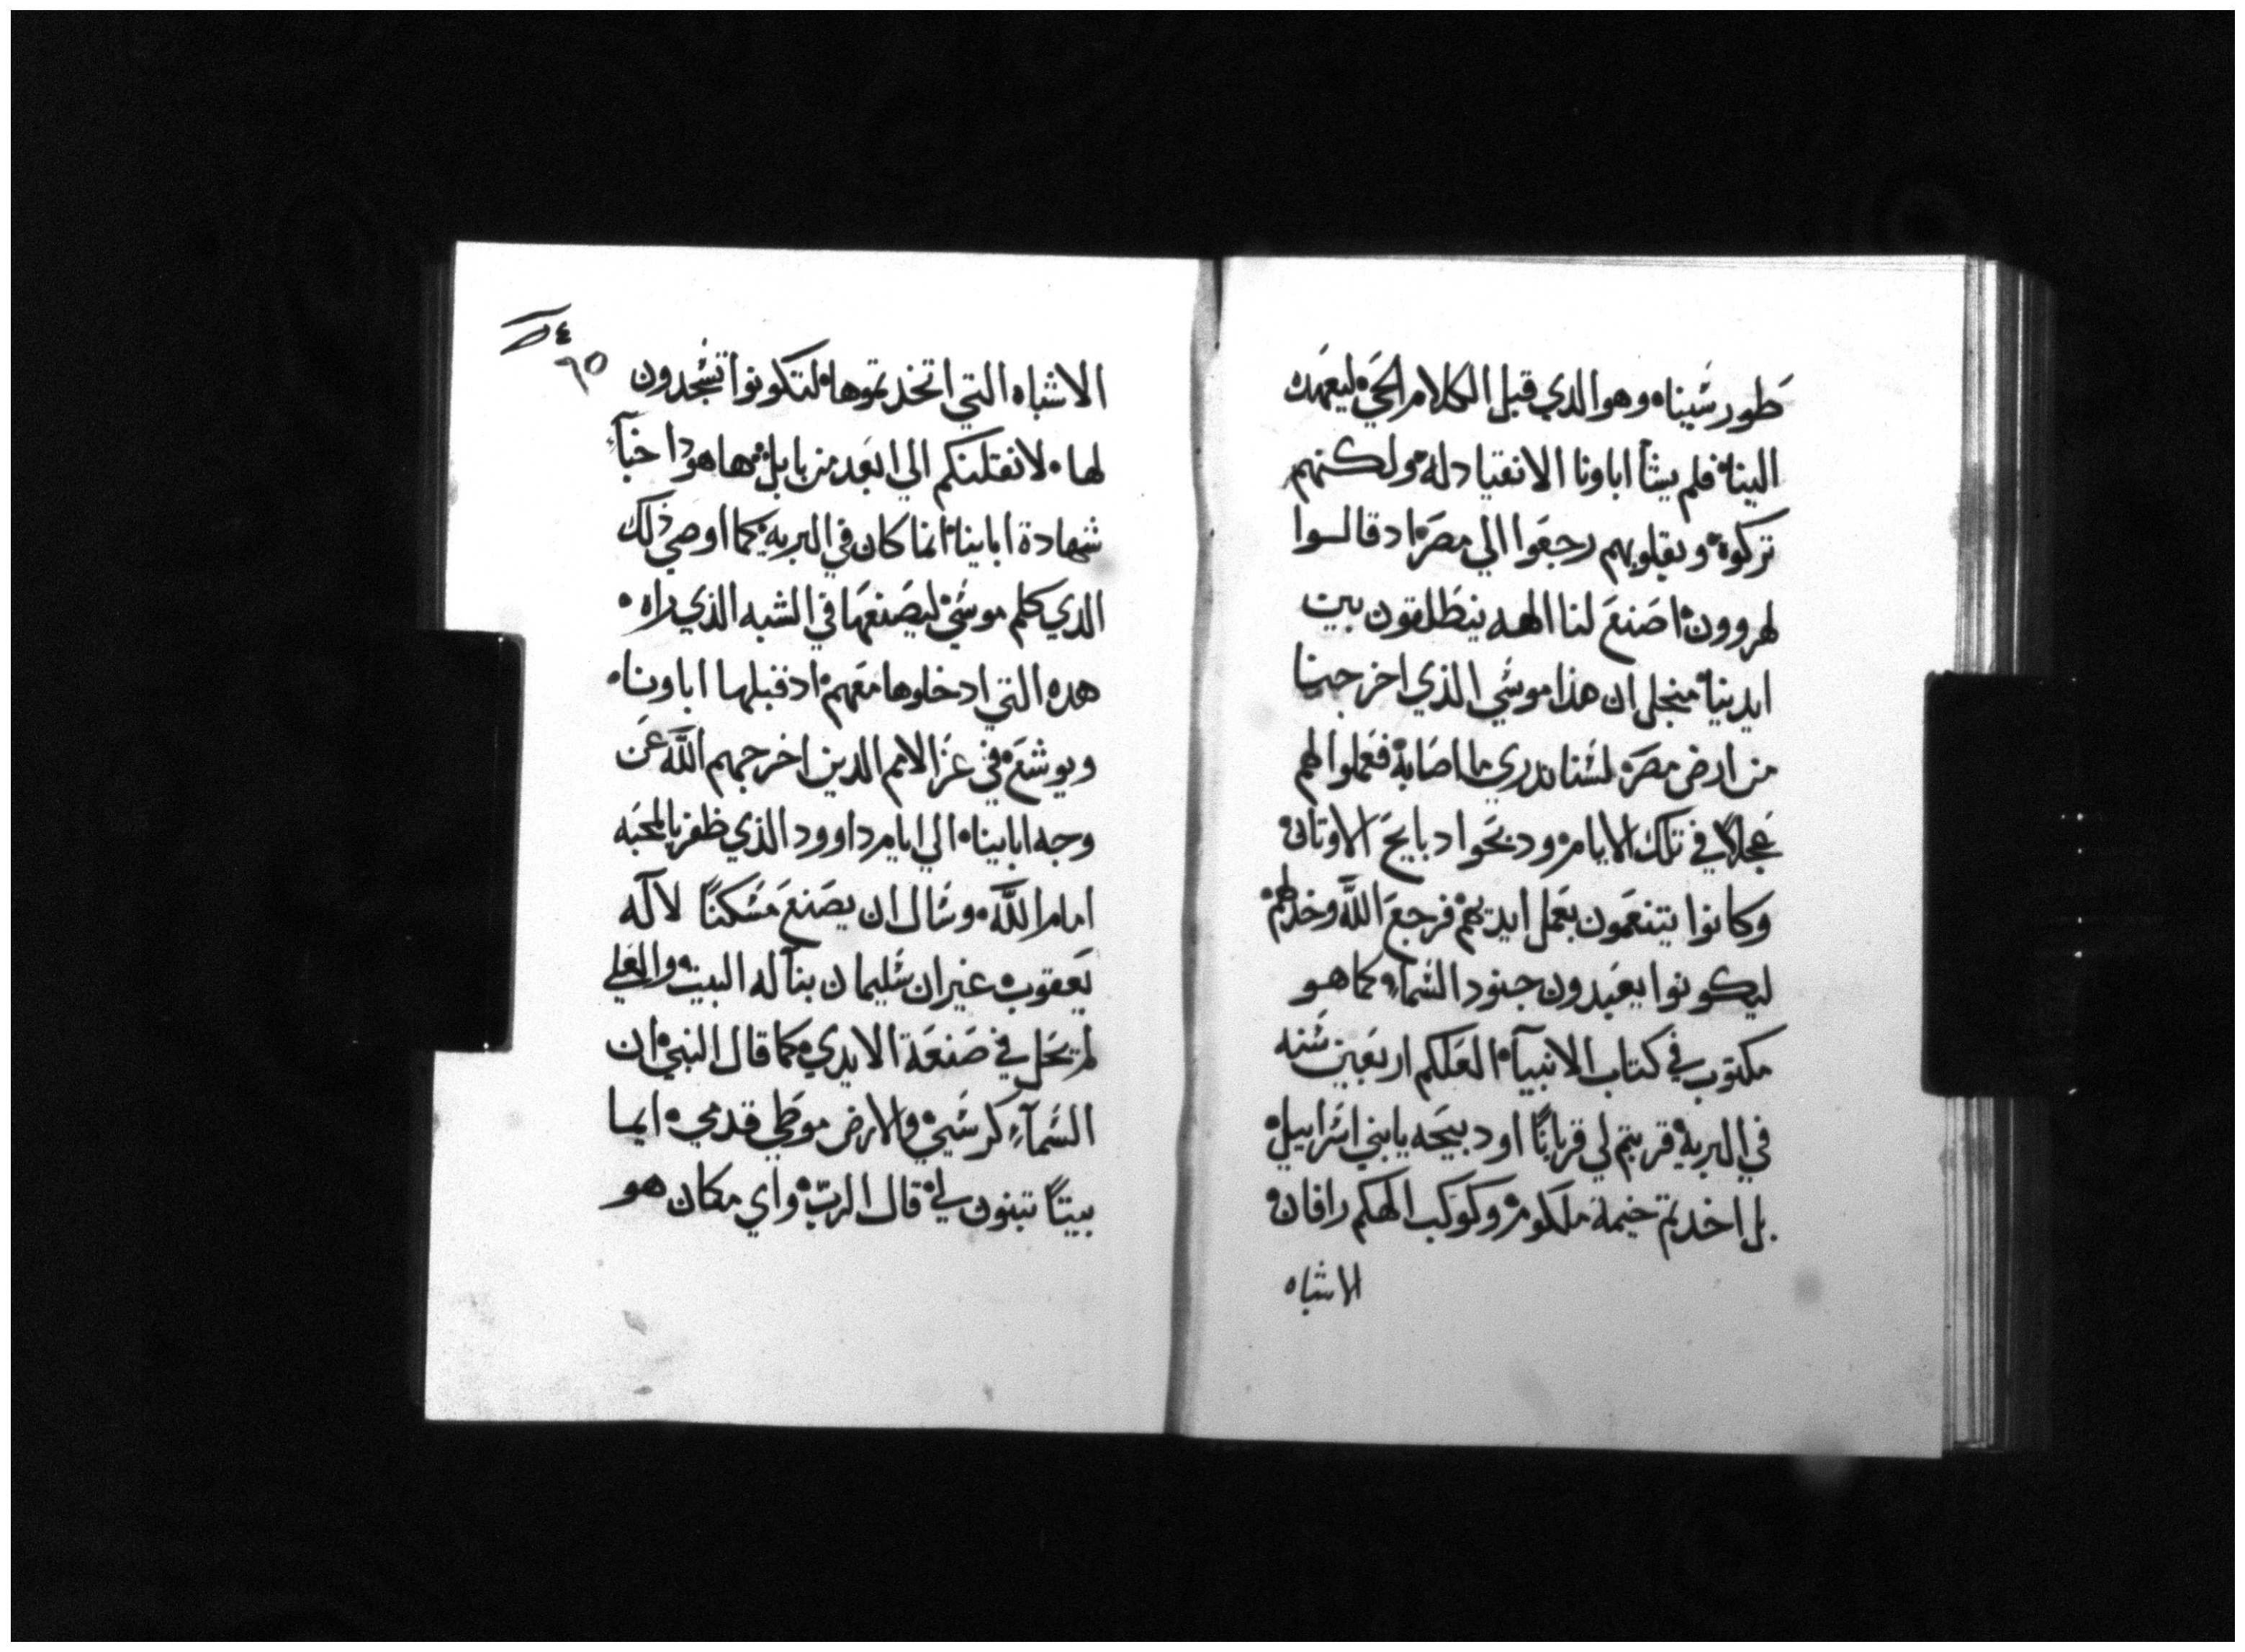 طور سيناه وهو الدي قبل الكلام الحي ليعهده
الينا فلم يشأ اباونا الانقياد له ولكنهم
تركوة وبقلوبهم رجعوا الي مصر اد قالوا
لهروون اصنع لنا الهه ينطلقون بين
ايدينا من اجل ان هذا موسي الذي اخرجنا
من ارض مصر لسنا ندري ما اصابة فعملوا لهم
عجلاً في تلك الايام ودبحوا دبايح الاوتان
وكانوا يتنعمون بعمل ايديهم فرجع الله وخدلهم
ليكونوا يعبدون جنود السمآء كما هو
مكتوب في كتاب الانبيآ العلكم اربعين سنه
في البرية قربتم لي قرباناً او دبيحه يابني اسراييل
بل اخدتم خيمة ملكوم وكوكب الهكم رافان
الاشباه
٩٥
الاشباه التي اتخذتموها لتكونوا تسجدون
لها لانقلنكم الي ابعد من بابل ها هودا خبآ
شهادة اباينا انما كان في البرية كما اوصي ذلك
الدي كلم موسي ليصنعها في الشبه الذي راه
هده التي ادخلوها معهم اد قبلها اباونا
ويوشع في عز الامم الدين اخرجهم الله عن
وجه اباينا الي ايام داوود الذي ظفر بالمحبه
امام الله وسال ان يصنع مسكناً لاله
يعقوب غير ان سليمان بنا له البيت والعلي
لم يحل في صنعة الايدي كما قال النبي ان
السمآء كرسيي والارض موطي قدمي ايما
بيتاً تبنون لي قال الرب واي مكان هو